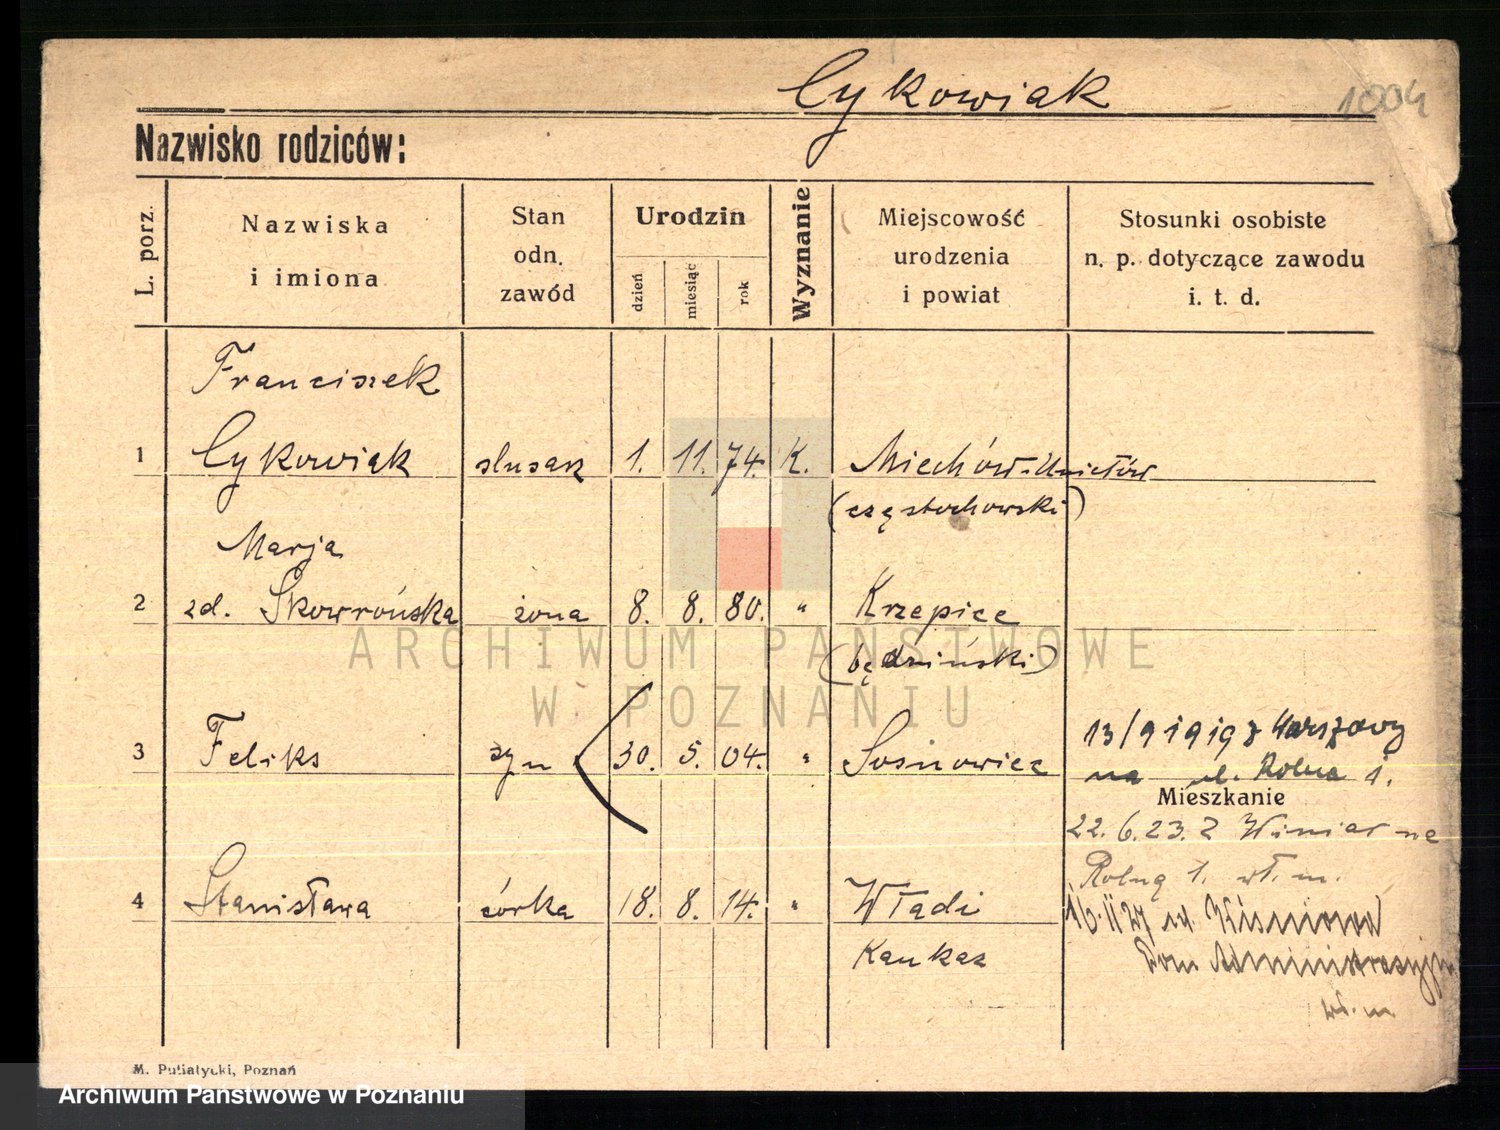 Cykowiak
1004
Nazwisko rodziców:
L. porz.
Nazwiska
i imiona
Stan
odn.
zawód
Urodzin
dzień
miesiąc
rok
Wyznanie
Miejscowość
urodzenia
i powiat
Stosunki osobiste
n. p. dotyczące zawodu
i. t. d.
Franciszek
1 Cykowiak ślusarz 1. 11. 74. K. Miechów
(częstochowski)
Marja
2 zd. Skowrońska żona 8. 8. 80. " Krzepice
(będziński)
3 Feliks syn 30. 5. 04. " Sosnowiec
13/9 1919 z Warszawy
na ul. Rolna 1.
Mieszkanie
22. 6. 23. z Winiar na
Rolną 1. wł. m.
4 Stanisława córka 18. 8. 14. " Władi
Kaukaz
16. II 27
Dom Administracyjny
wł. m.
ARCHIWUM PAŃSTWOWE
W POZNANIU
M. Putiatycki, Poznań
Archiwum Państwowe w Poznaniu